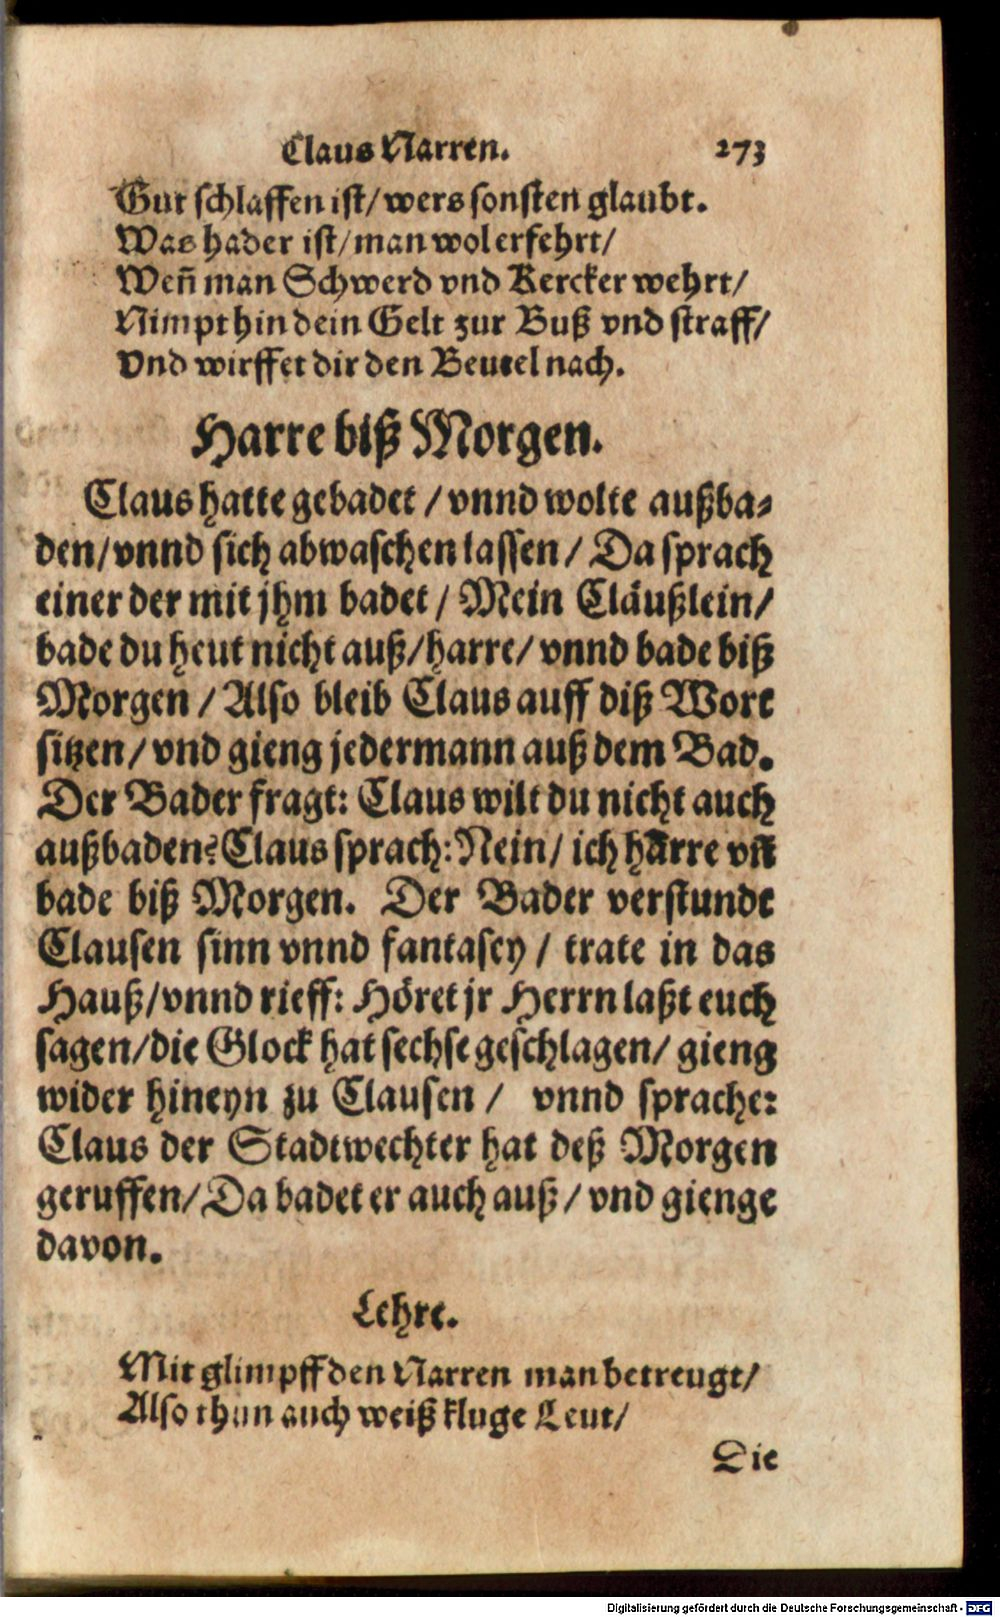 Claus Narren. 273
Gut schlaffen ist/ wers sonsten glaubt.
Was hader ist/ man wol erfehrt/
Weñ man Schwerd vnd Kercker wehrt/
Nimpt hin dein Gelt zur Buß vnd straff/
Vnd wirffet dir den Beutel nach.
Harre biß Morgen.
Claus hatte gebadet / vnnd wolte außba-
den/ vnnd sich abwaschen lassen / Da sprach
einer der mit jhm badet / Mein Cläußlein/
bade du heut nicht auß/ harre/ vnnd bade biß
Morgen / Also bleib Claus auff diß Wort
sitzen/ vnd gieng jedermann auß dem Bad.
Der Bader fragt: Claus wilt du nicht auch
außbaden? Claus sprach: Nein/ ich harre vñ
bade biß Morgen. Der Bader verstunde
Clausen sinn vnnd fantasey / trate in das
Hauß/ vnnd rieff: Höret jr Herrn laßt euch
sagen/ die Glock hat sechse geschlagen/ gieng
wider hineyn zu Clausen / vnnd sprache:
Claus der Stadtwechter hat deß Morgen
geruffen/ Da badet er auch auß / vnd gienge
davon.
Lehre.
Mit glimpff den Narren man betreugt/
Also thun auch weiß kluge Leut/
Die
Digitalisierung gefördert durch die Deutsche Forschungsgemeinschaft - DFG